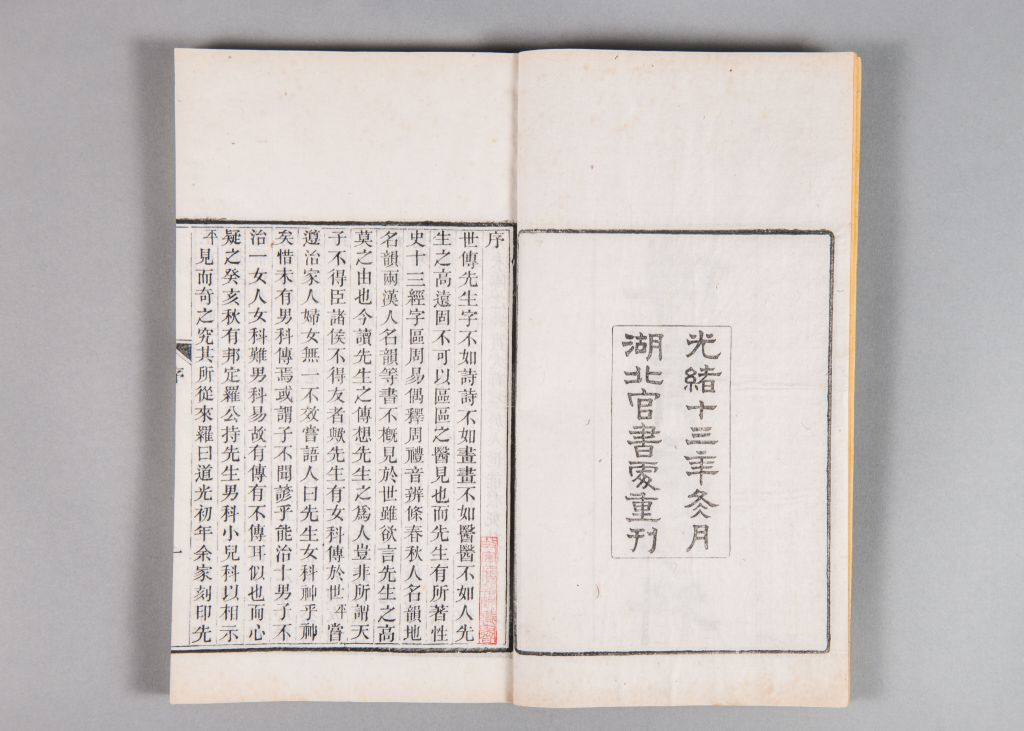 光緒十三年冬月
湖北官書處重刊
序
世傳先生字不如詩詩不如畫畫不如醫醫不如人先
生之高遠固不可以區區之醫見也而先生有所著性
史十三經字區周易偶釋周禮音辨條春秋人名韻地
名韻兩漢人名韻等書不概見於世雖欲言先生之高
莫之由也今讀先生之傳想先生之爲人豈非所謂天
子不得臣諸侯不得友者歟先生有女科傳於世平嘗
遵治家人婦女無一不效嘗語人曰先生女科神乎神
矣惜未有男科傳焉或謂子不聞諺乎能治十男子不
治一女人女科難男科易故有傳有不傳耳似也而心
疑之癸亥秋有邦定羅公持先生男科小兒科以相示
平見而奇之究其所從來羅曰道光初年余家刻印先
序
一